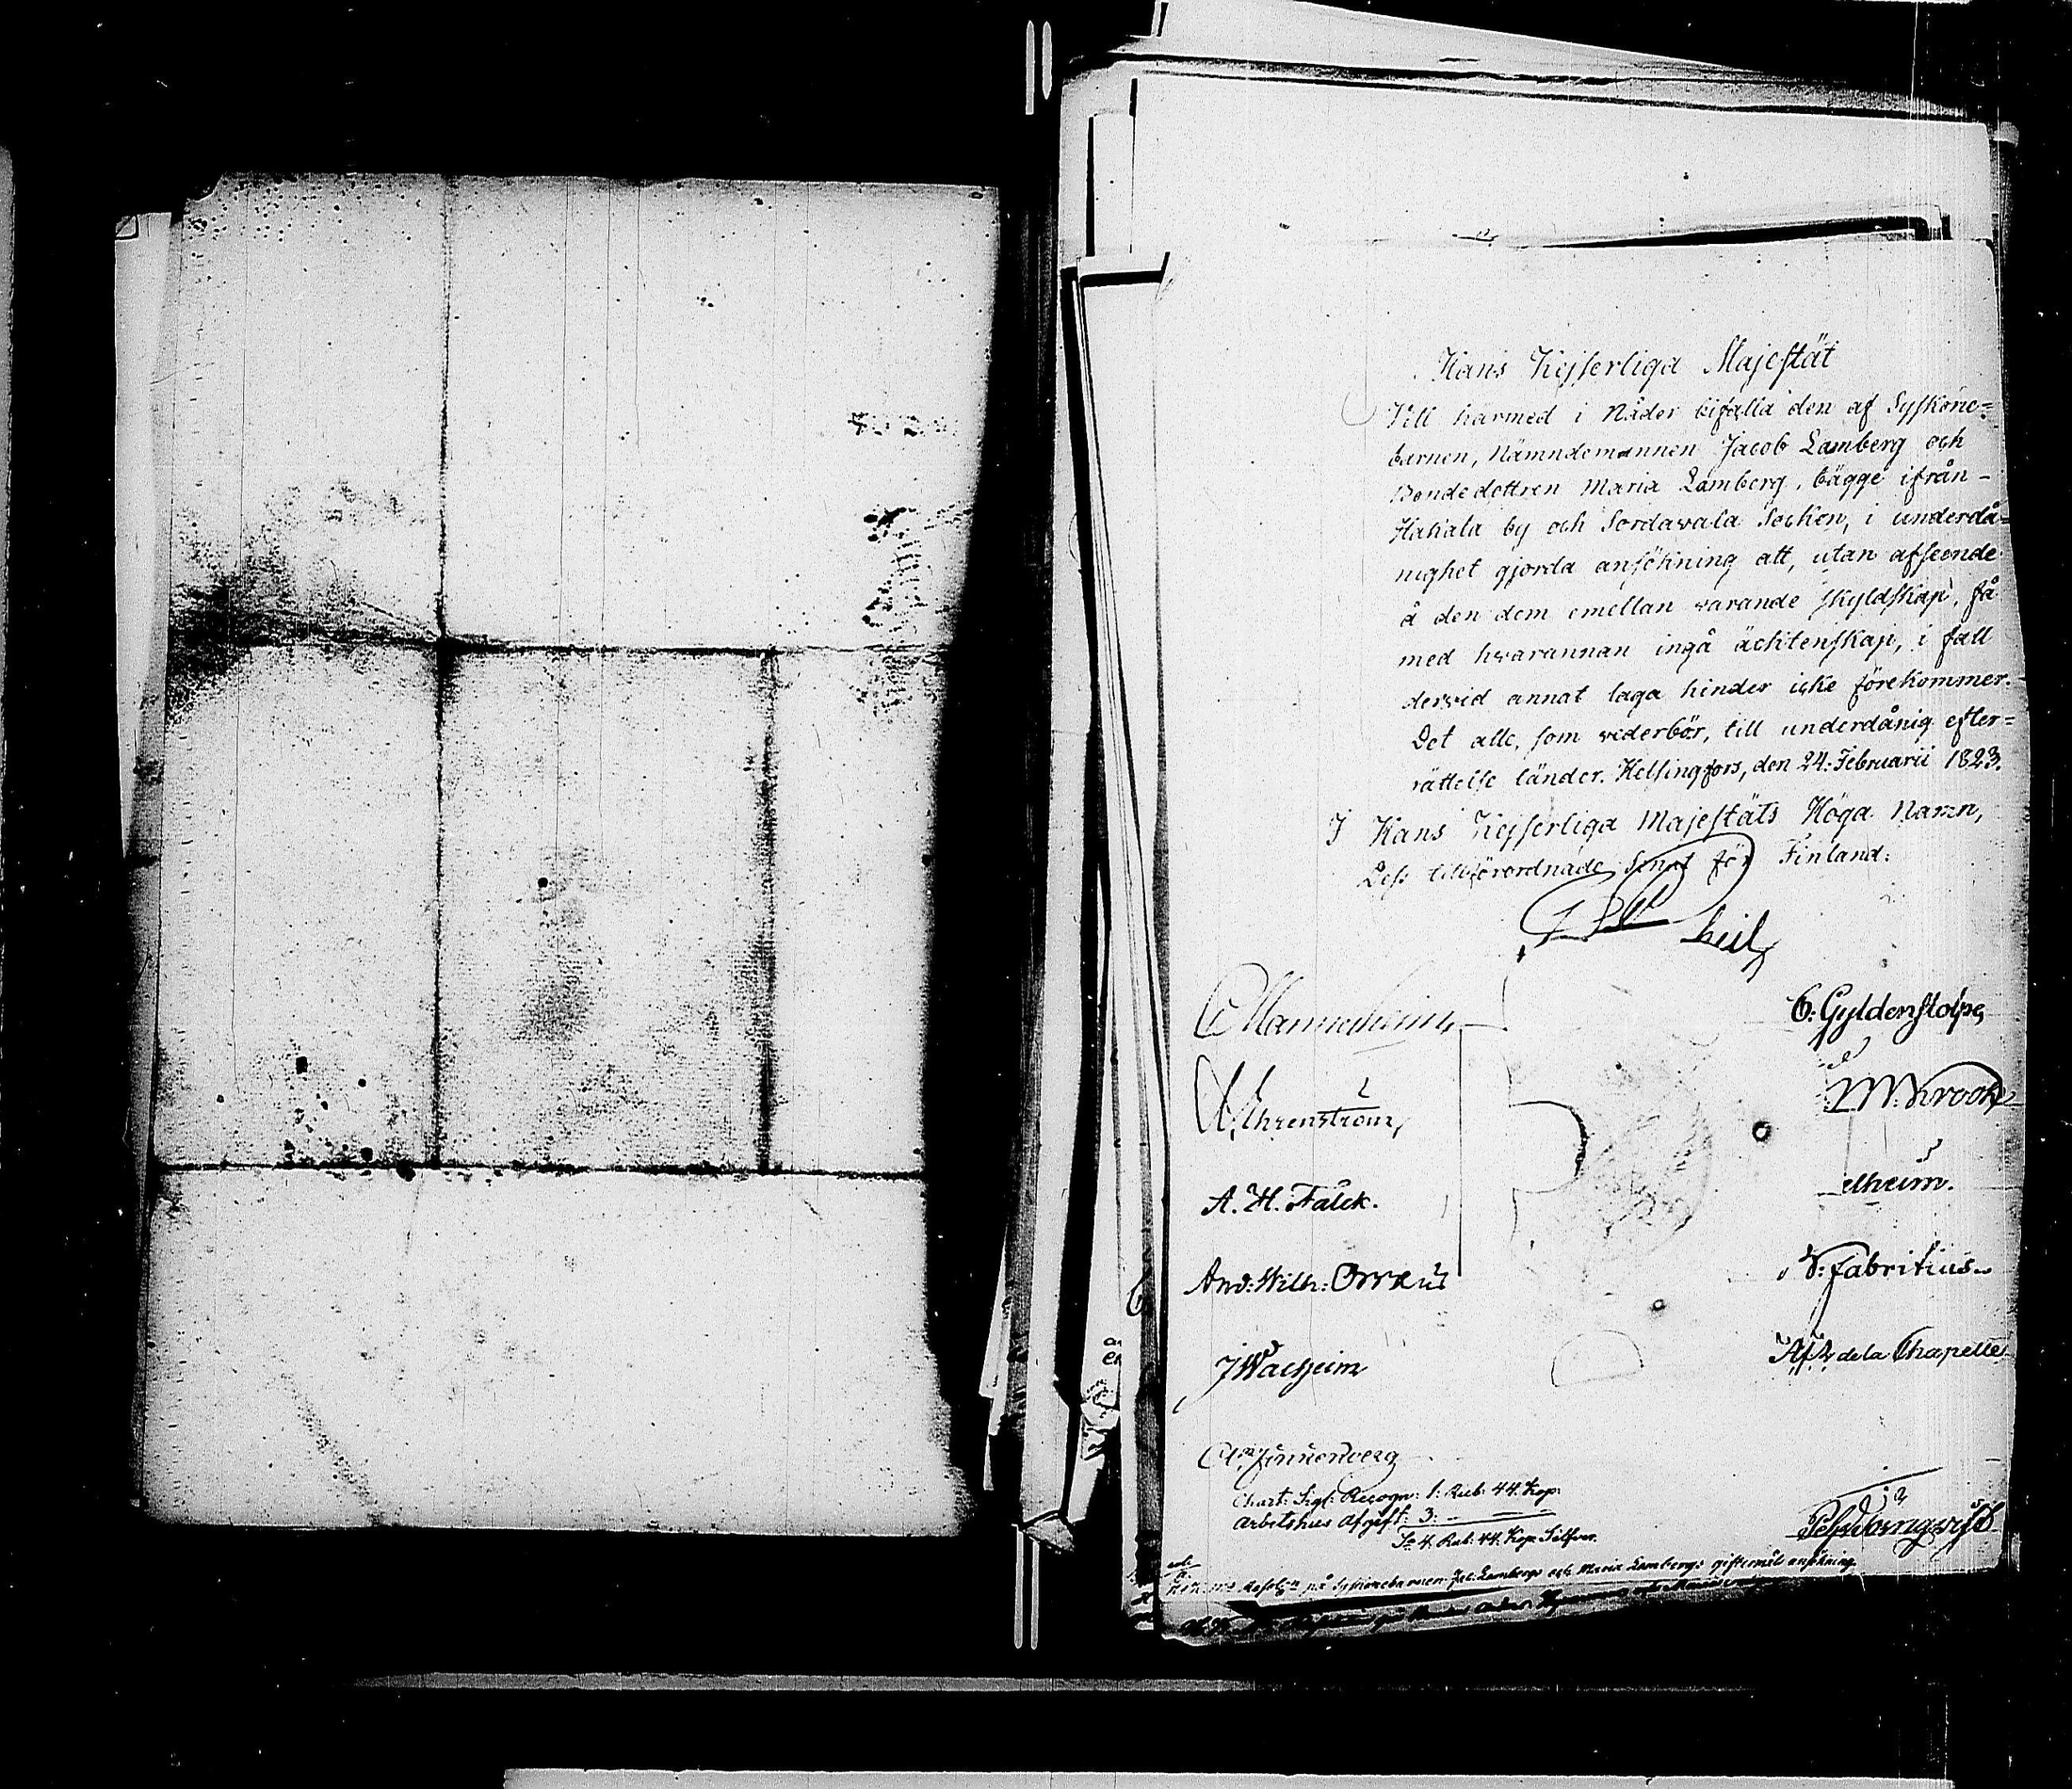 Hans Kejserliga Majestät
Vill härmed i Nåder bifalla den af Syskone=
barnen, Nämndemannen Jacob Lamberg och
Bondedottren Maria Lamberg, bägge ifrån -
Hakala by och Sordavala Socken, i underdå=
nighet gjorda ansökning att, utan afseende
å den dem emellan varande skyldskap, få
med hvarannan ingå ächtenskap, i fall
dervid annat laga hinder icke förekommer.
Det alle, som vederbör, till underdånig efter=
rättelse länder. Helsingfors, den 24. Februarii 1823.
I Hans Kejserliga Majestäts Höga Namn,
Dess tillförordnade Senat för Finland:
C Mannerheim
C: Gyldenstolpe
Ehrenström
M: Krook
A. H. Falck.
elheim.
And: Wilh: Orræus
Fabritius
J Walheim
de la Chapelle
Chart: Sigl: Recogn: 1: Rub: 44. Kop:
Arbetshus Afgift: 3: — —
Sa 4. Rub: 44. Kop: Silfver.
på Syskonebarnen Jac: Lambergs och Maria Lambergs giftermåls ansökning.